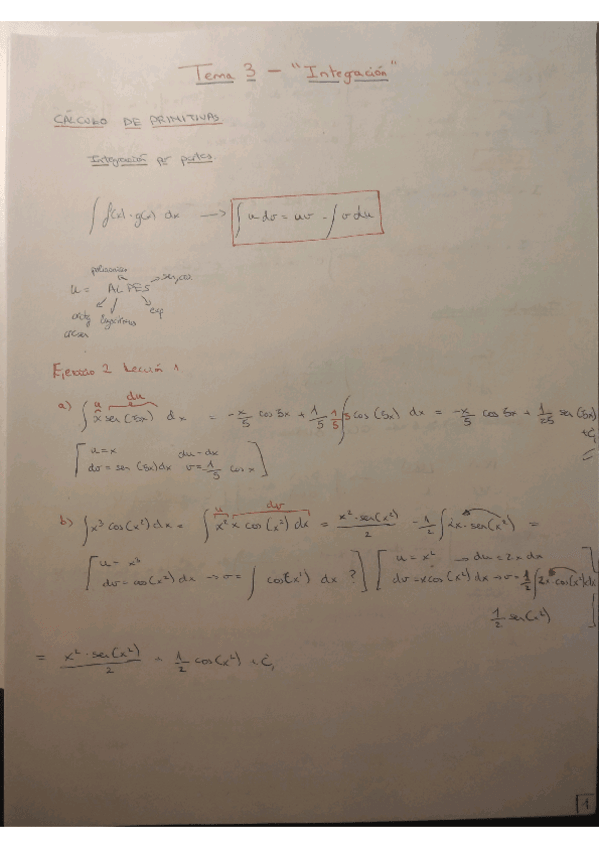 Tema 3 - "Integración"
CÁLCULO DE PRIMITIVAS
Integración por partes
∫ f(x)·g(x) dx → ∫ u dv = uv - ∫ v du
polinomios
u = ALPES → sen, cos
exp
Ejercicio 2 Lección 1
u du
a) ∫ x sen(5x) dx = -x/5 cos 5x + 1/5 1/5 ∫ 5 cos(5x) dx = -x/5 cos 5x + 1/25 sen(5x) + C,
[ u = x du = dx
dv = sen(5x) dx v = -1/5 cos x ]
u dv
b) ∫ x³ cos(x²) dx = ∫ x² x cos(x²) dx = x²·sen(x²)/2 - 1/2 ∫ 2x·sen(x²) =
[ u = x³
dv = cos(x²) dx → v = ∫ cos(x²) dx ? ] [ u = x² → du = 2x dx
dv = x cos(x²) dx → v = 1/2 ∫ 2x·cos(x²) dx
1/2 sen(x²) ]
= x²·sen(x²)/2 + 1/2 cos(x²) + C,
1